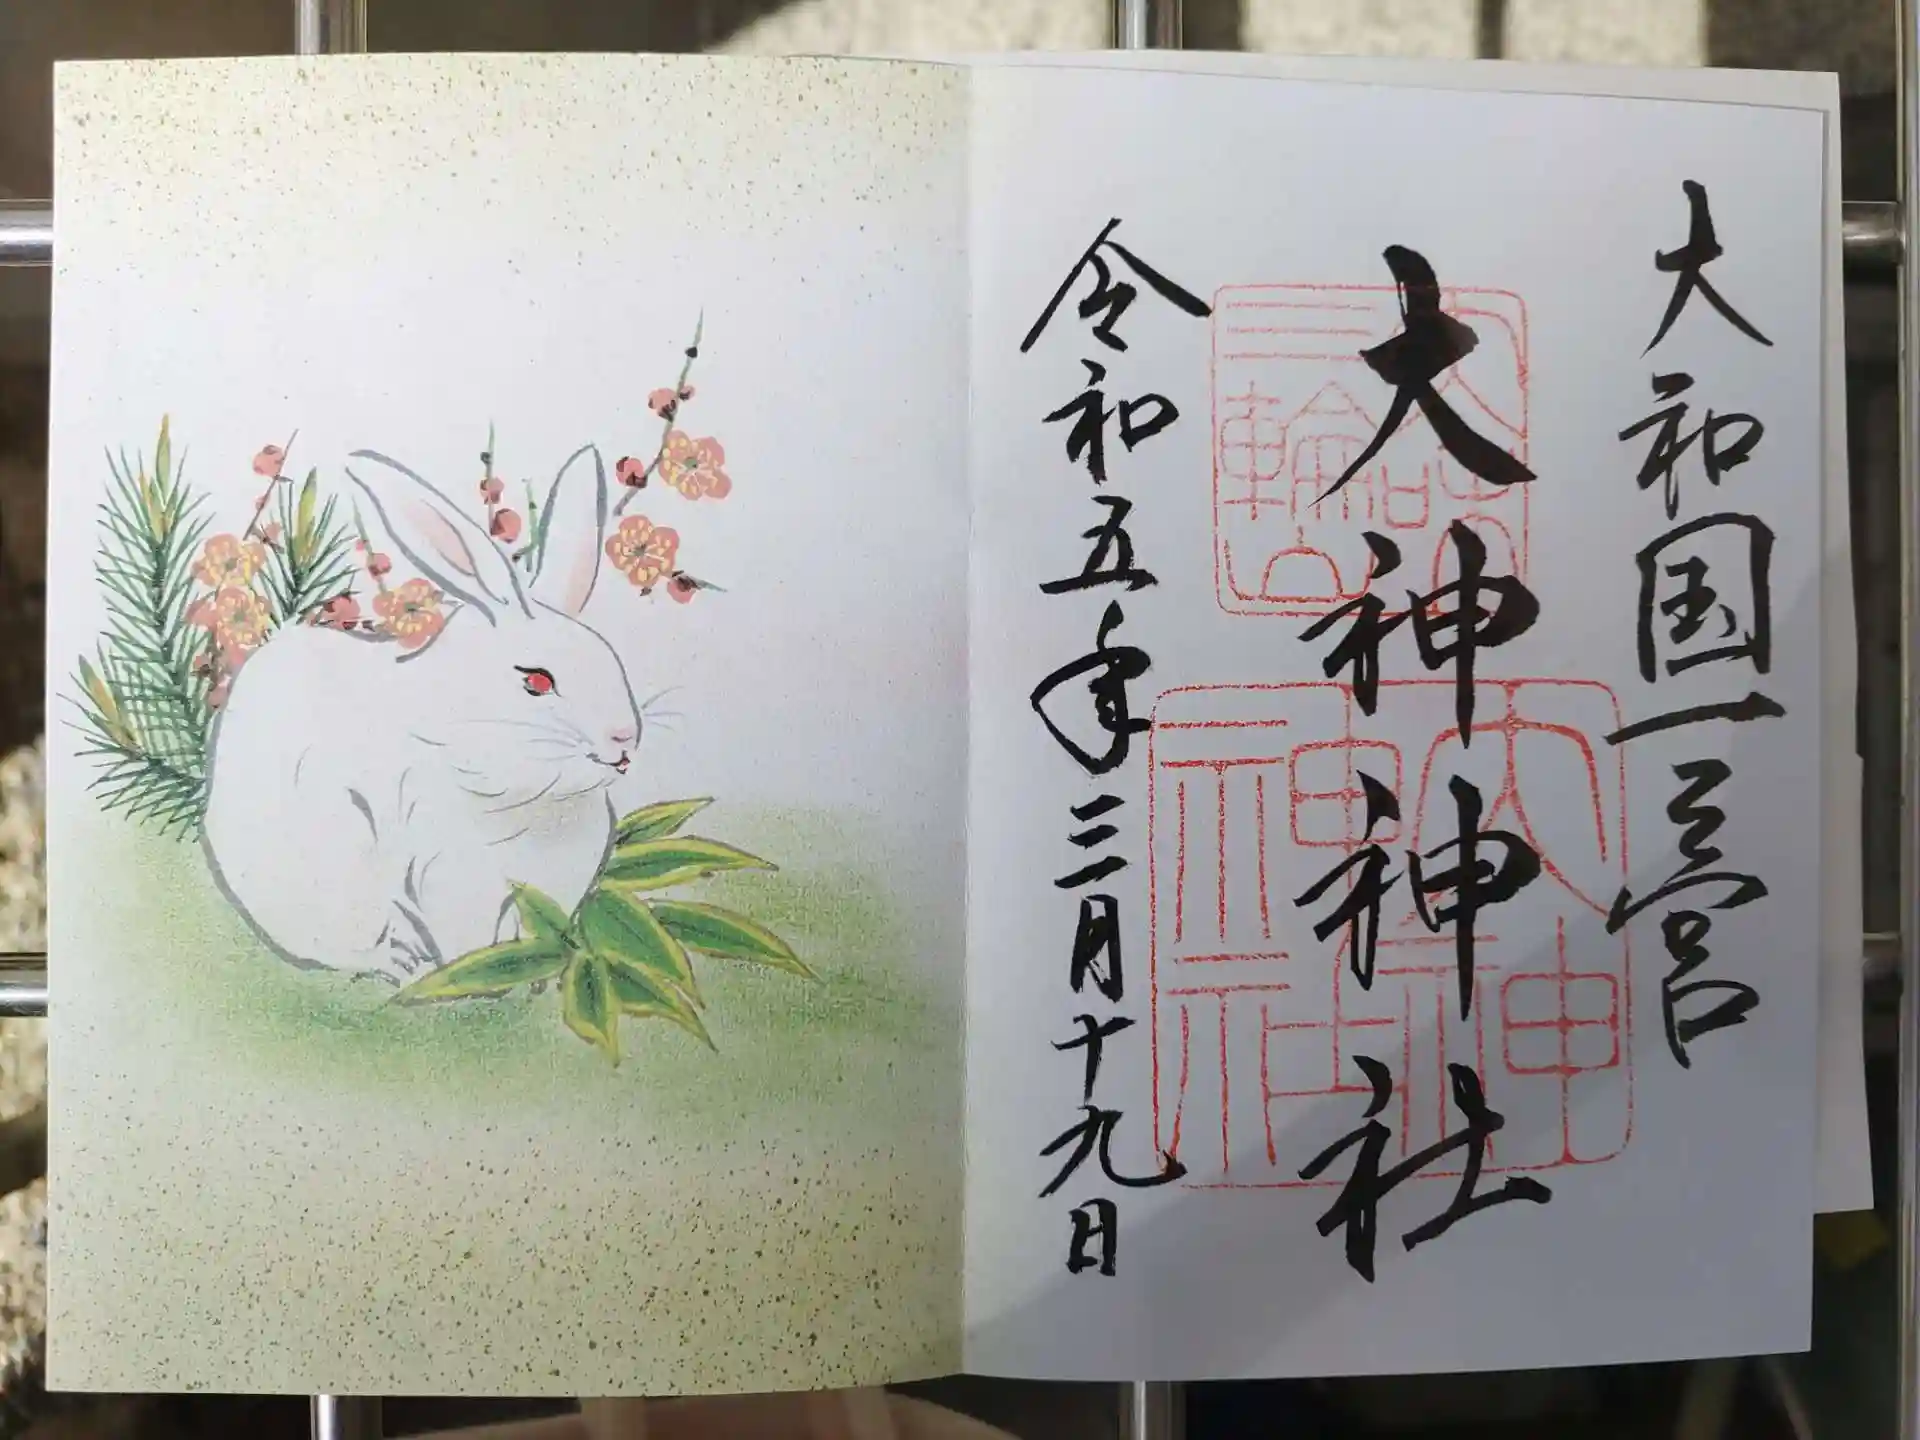 大和国一之宮
大神神社
三輪明神
大神神社
令和五年三月十九日